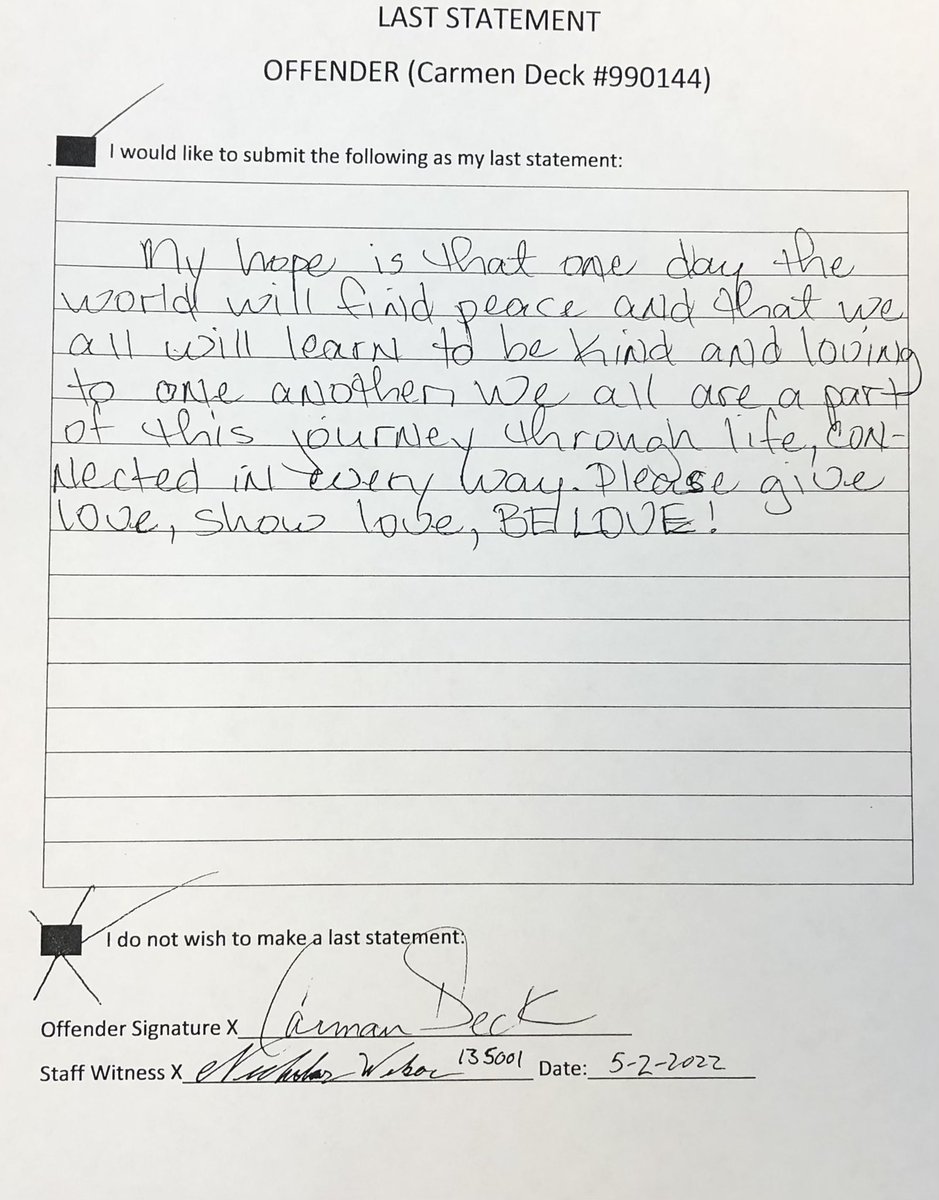 LAST STATEMENT
OFFENDER (Carmen Deck #990144)
I would like to submit the following as my last statement:
My hope is that one day the
world will find peace and that we
all will learn to be kind and loving
to one another, we all are a part
of this journey through life, con-
nected in every way. Please give
love, show love, BE LOVE!
I do not wish to make a last statement:
Offender Signature X Carman Deck
Staff Witness X Nicholas 135001 Date: 5-2-2022